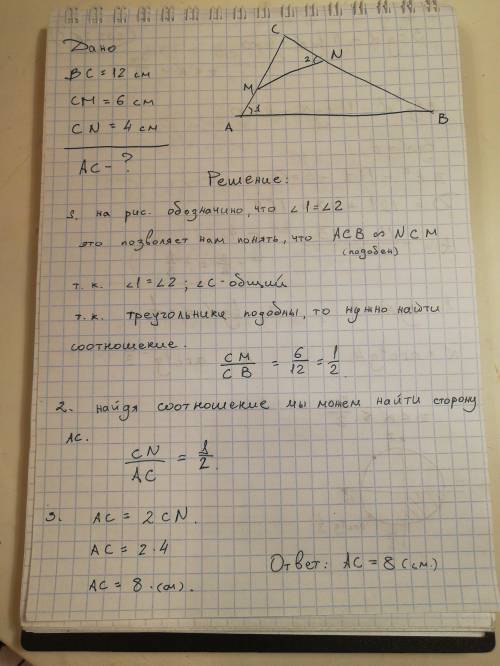 Дано
BC = 12 см
CM = 6 см
CN = 4 см
AC - ?
C
N
2
M
1
A
B
Решение:
1. на рис. обозначино, что ∠1=∠2
это позволяет нам понять, что ACB ∞ NCM
(подобен)
т.к. ∠1=∠2; ∠C - общий
т.к. треугольники подобны, то нужно найти
соотношение.
CM/CB = 6/12 = 1/2.
2. найдя соотношение мы можем найти сторону
AC.
CN/AC = 1/2.
3. AC = 2CN.
AC = 2·4
AC = 8 (см).
Ответ: AC = 8 (см.)